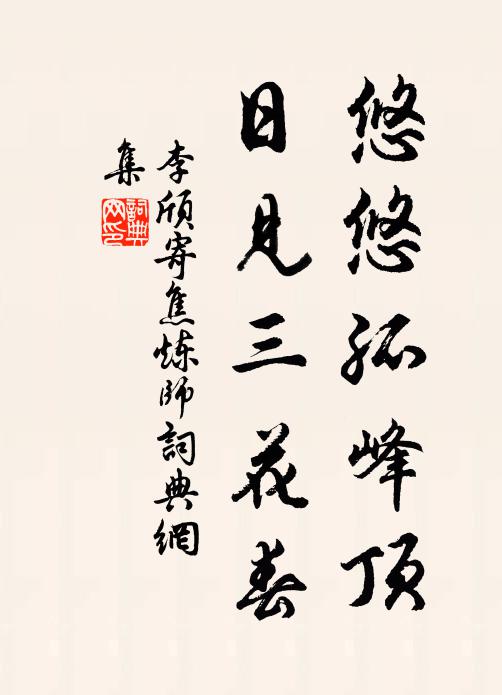 悠悠孤峰顶
日见三花春
李颀寄焦炼师詞典網
集
詞典
网印